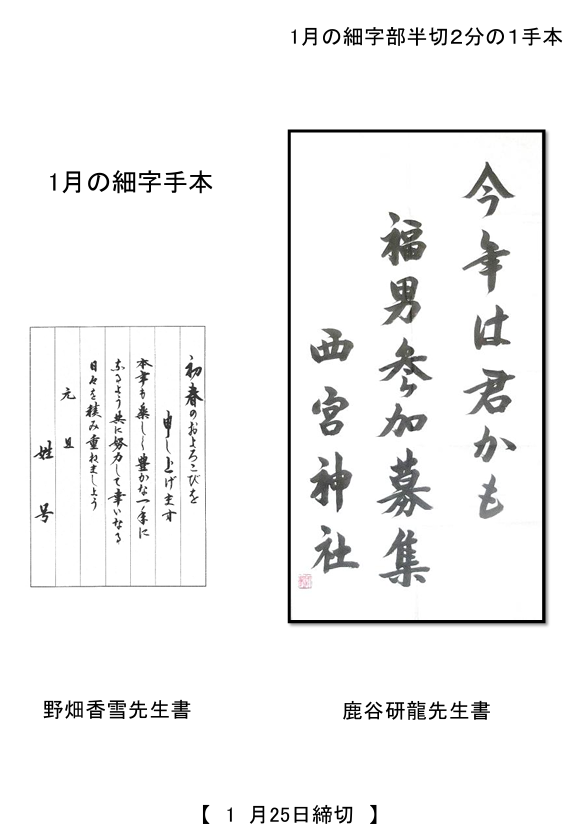 1月の細字部半切2分の1手本
1月の細字手本
今年は君かも
福男参加募集
西宮神社
初春のおよろこびを
申し上げます
本年も楽しく豊かな一年に
なるよう共に努力して幸いなる
日々を積み重ねましょう
元旦
姓号
野畑香雪先生書
鹿谷研龍先生書
【 1 月25日締切 】